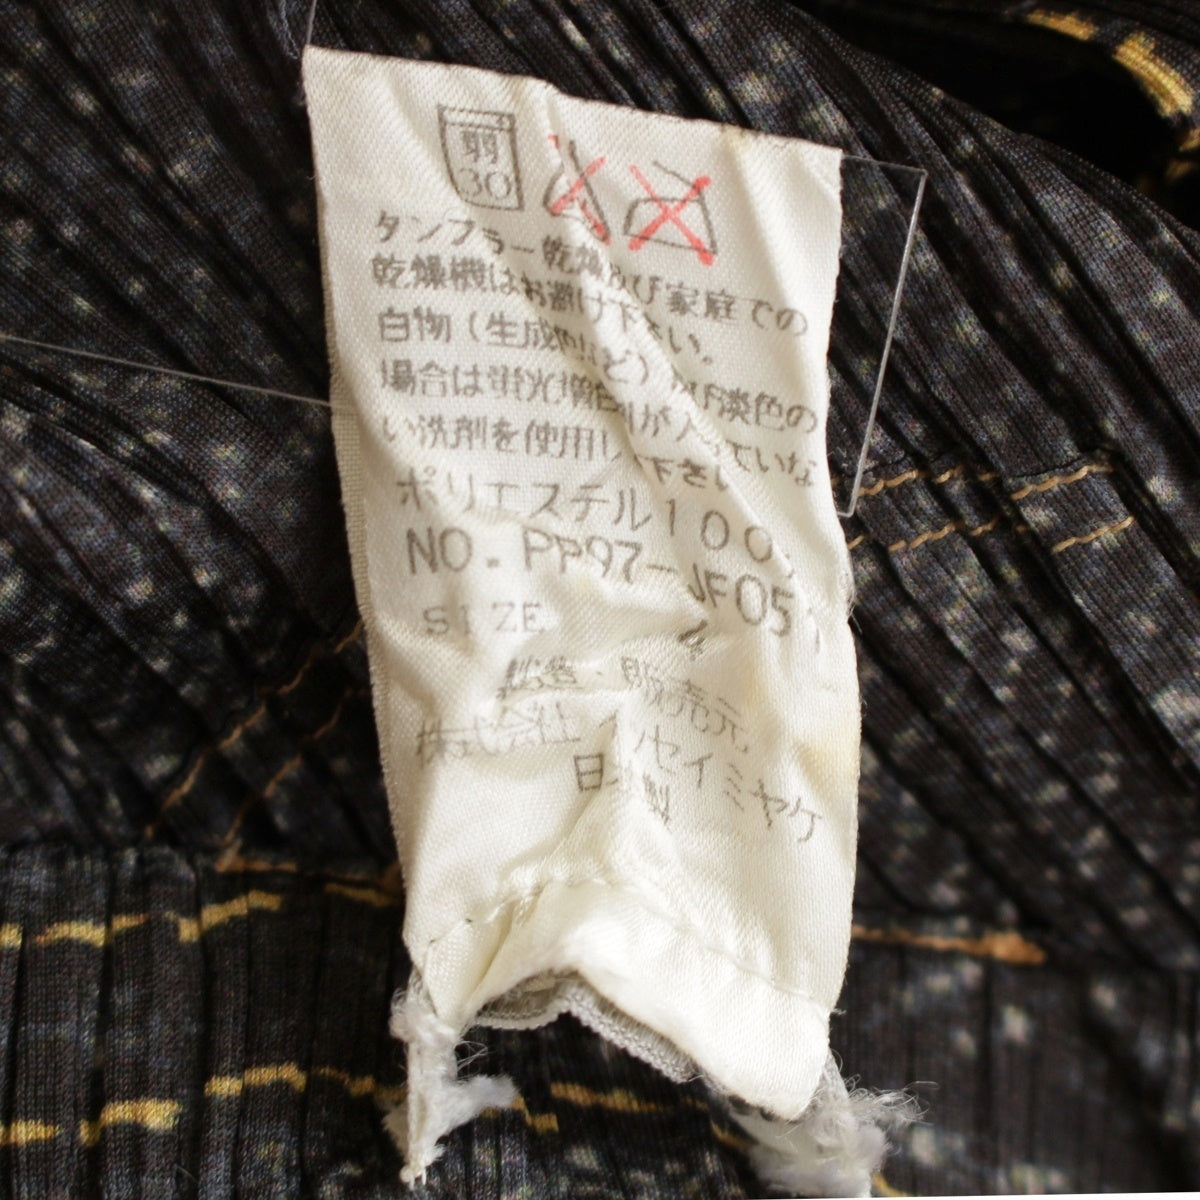 弱
30
タンブラー乾燥及び家庭での
乾燥機はお避け下さい。
白物(生成など)及び淡色の
場合は蛍光増白剤が入っていな
い洗剤を使用して下さい
ポリエステル100
NO. PP97-JF05
SIZE 4
製造・販売元
株式会社 イッセイミヤケ
日本製